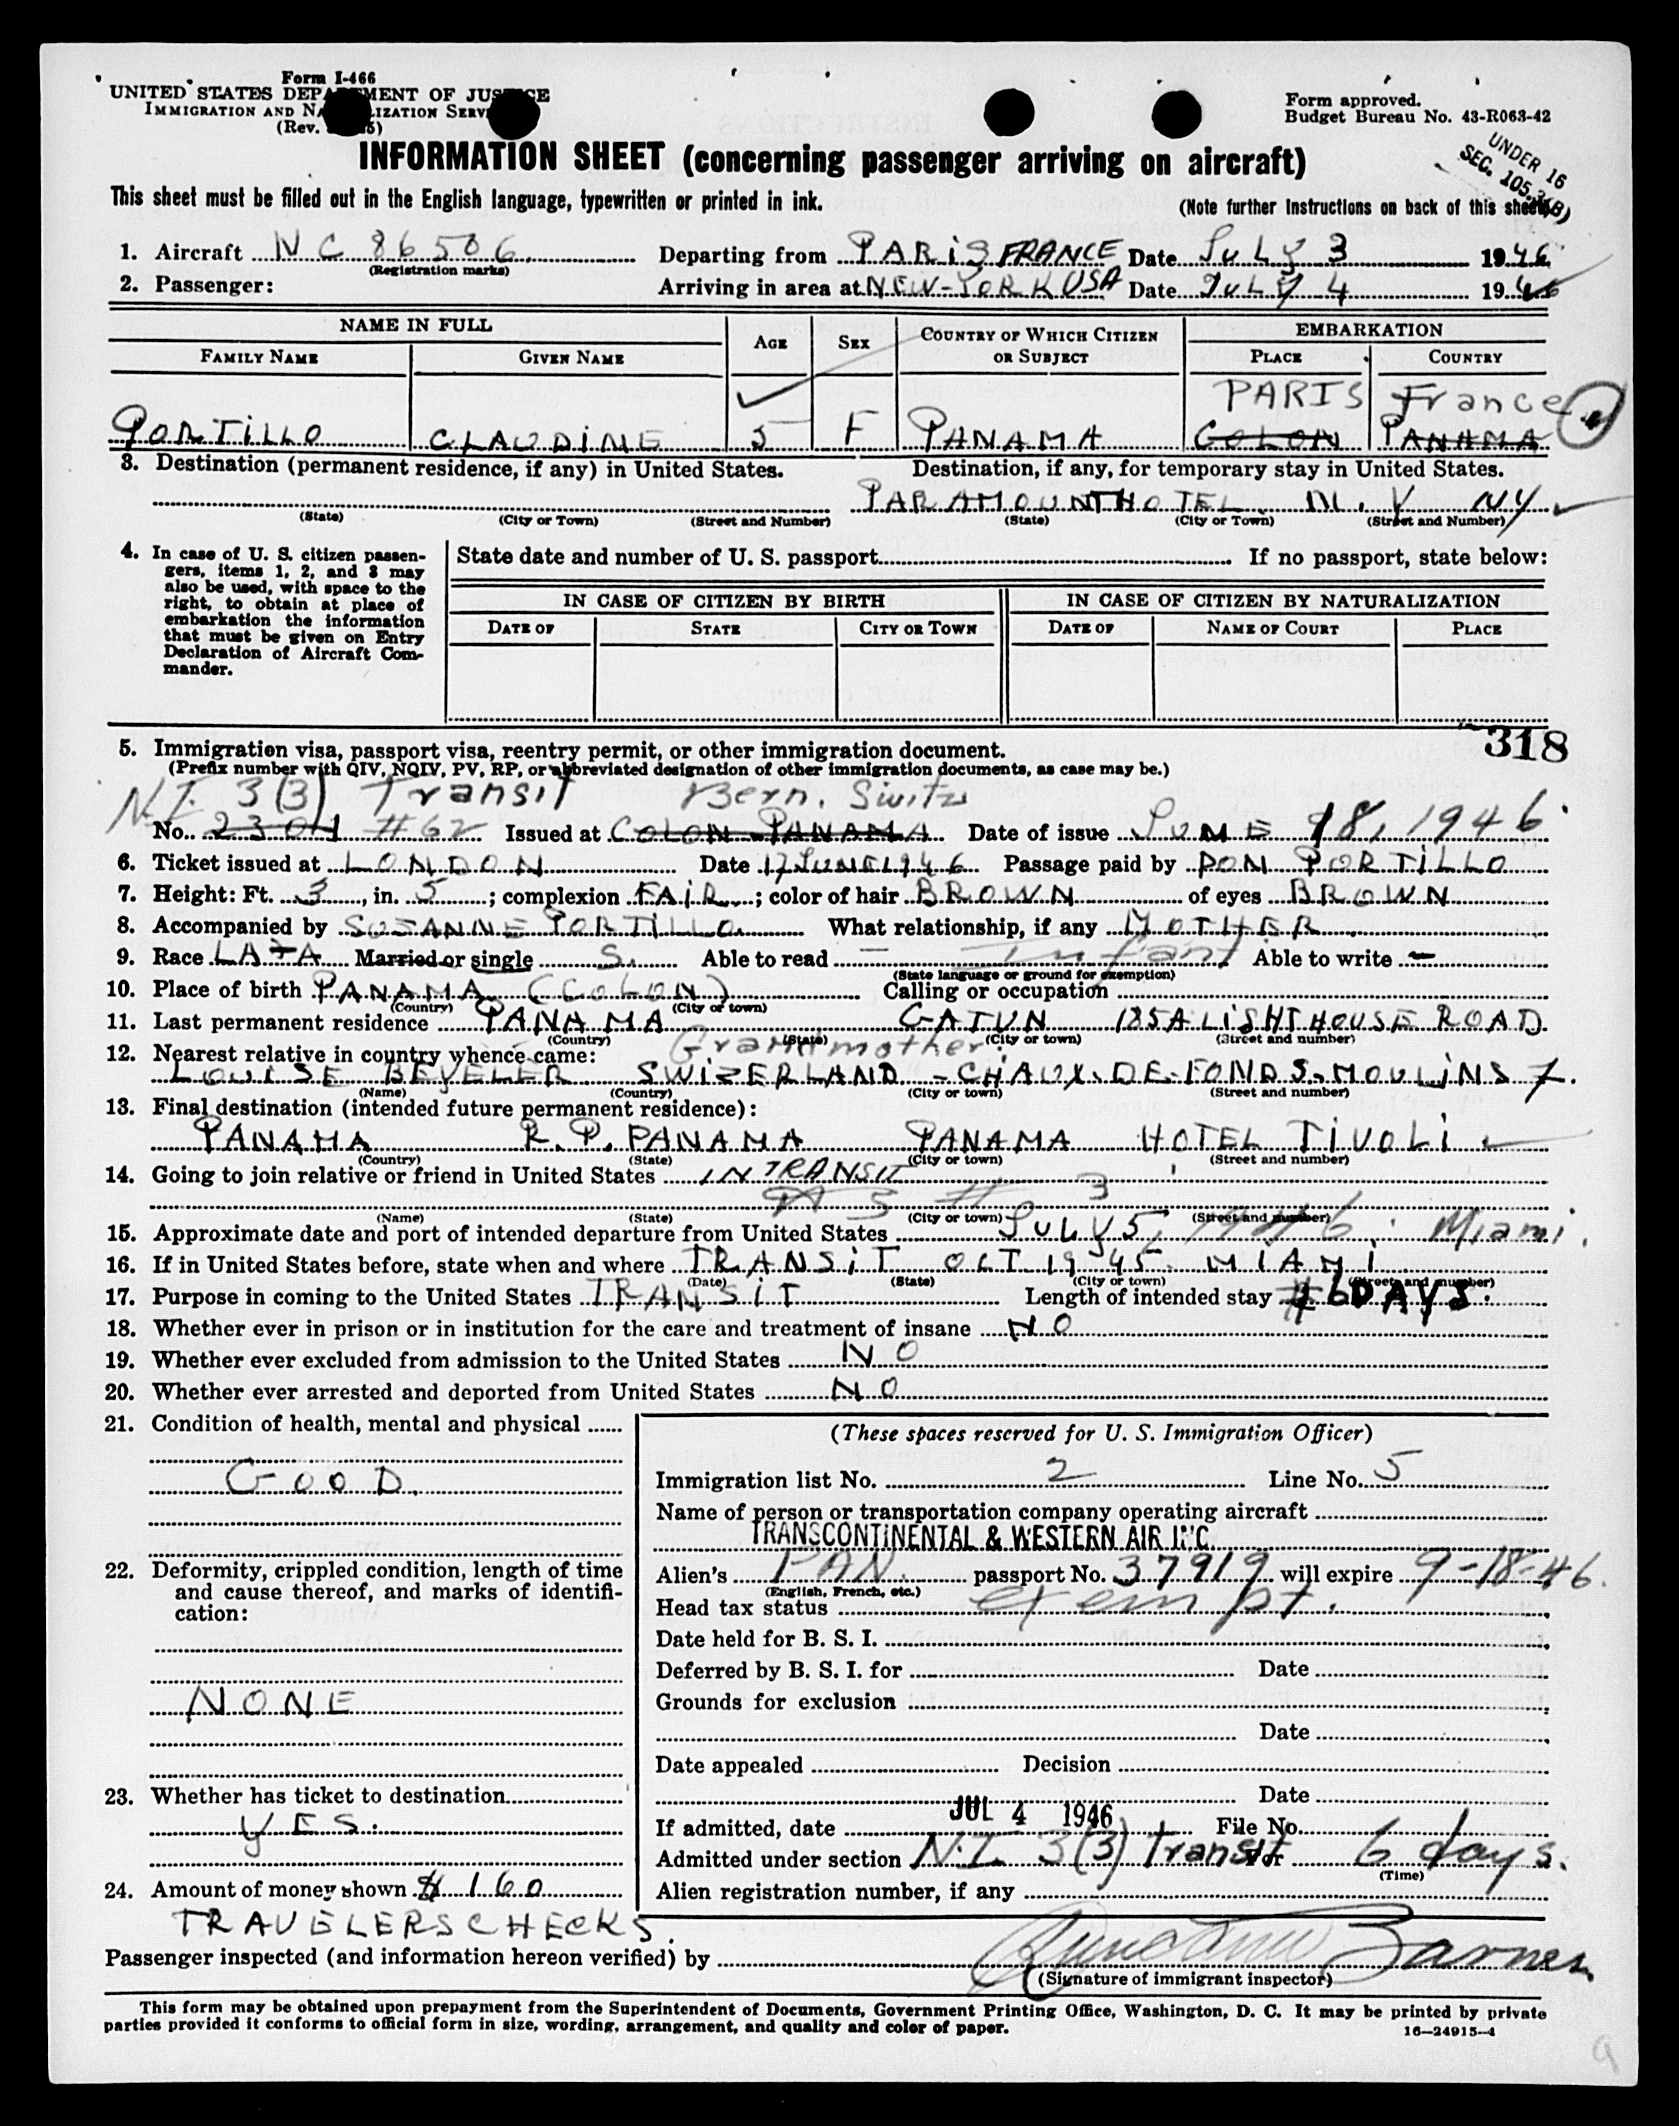 Form I-466
UNITED STATES DEPARTMENT OF JUSTICE
IMMIGRATION AND NATURALIZATION SERVICE
(Rev.
Form approved.
Budget Bureau No. 43-R063-42
UNDER 16
SEC. 105.3(B)
INFORMATION SHEET (concerning passenger arriving on aircraft)
This sheet must be filled out in the English language, typewritten or printed in ink.
(Note further instructions on back of this sheet)
1. Aircraft NC 86506 Departing from PARIS FRANCE Date July 3 1946
(Registration marks)
2. Passenger: Arriving in area at NEW-YORK USA Date July 4 1946
NAME IN FULL
FAMILY NAME GIVEN NAME AGE SEX COUNTRY OF WHICH CITIZEN OR SUBJECT EMBARKATION PLACE COUNTRY
PARIS France
PORTILLO CLAUDINE 5 F PANAMA COLON PANAMA
3. Destination (permanent residence, if any) in United States. Destination, if any, for temporary stay in United States.
PARAMOUNT HOTEL N.Y NY
(State) (City or Town) (Street and Number) (State) (City or Town) (Street and Number)
4. In case of U. S. citizen passen-
gers, items 1, 2, and 3 may
also be used, with space to the
right, to obtain at place of
embarkation the information
that must be given on Entry
Declaration of Aircraft Com-
mander.
State date and number of U. S. passport If no passport, state below:
IN CASE OF CITIZEN BY BIRTH IN CASE OF CITIZEN BY NATURALIZATION
DATE OF STATE CITY OR TOWN DATE OF NAME OF COURT PLACE
318
5. Immigration visa, passport visa, reentry permit, or other immigration document.
(Prefix number with QIV, NQIV, PV, RP, or abbreviated designation of other immigration documents, as case may be.)
N.I. 3(3) Transit Bern. Switz
No. 2304 #62 Issued at COLON PANAMA Date of issue JUNE 18, 1946
6. Ticket issued at LONDON Date 17 JUNE 1946 Passage paid by DON PORTILLO
7. Height: Ft. 3, in. 5; complexion FAIR; color of hair BROWN of eyes BROWN
8. Accompanied by SUZANNE PORTILLO What relationship, if any MOTHER
9. Race LATA Married or single S. Able to read - Infant Able to write -
(State language or ground for exemption)
10. Place of birth PANAMA (COLON) Calling or occupation
(Country) (City or town)
11. Last permanent residence PANAMA GATUN 185A LIGHTHOUSE ROAD
(Country) (State) (City or town) (Street and number)
12. Nearest relative in country whence came: Grandmother
LOUISE BEYELER SWIZERLAND - CHAUX-DE-FONDS-MOULINS 7.
(Name) (Country) (City or town) (Street and number)
13. Final destination (intended future permanent residence):
PANAMA R.P. PANAMA PANAMA HOTEL TIVOLI
(Country) (State) (City or town) (Street and number)
14. Going to join relative or friend in United States IN TRANSIT
(Name) (State) (City or town) (Street and number)
15. Approximate date and port of intended departure from United States JULY 5, 1946. Miami.
16. If in United States before, state when and where TRANSIT OCT 1945 MIAMI
(Date) (State) (City or town) (Street and number)
17. Purpose in coming to the United States TRANSIT Length of intended stay 6 DAYS.
18. Whether ever in prison or in institution for the care and treatment of insane NO
19. Whether ever excluded from admission to the United States NO
20. Whether ever arrested and deported from United States NO
21. Condition of health, mental and physical
GOOD.
22. Deformity, crippled condition, length of time
and cause thereof, and marks of identifi-
cation:
NONE
23. Whether has ticket to destination
YES.
24. Amount of money shown $ 160
TRAVELERS CHECKS.
(These spaces reserved for U. S. Immigration Officer)
Immigration list No. 2 Line No. 5
Name of person or transportation company operating aircraft
TRANSCONTINENTAL & WESTERN AIR INC.
Alien's PAN. passport No. 37919 will expire 9-18-46.
(English, French, etc.)
Head tax status exempt.
Date held for B. S. I.
Deferred by B. S. I. for Date
Grounds for exclusion
Date
Date appealed Decision
Date
If admitted, date JUL 4 1946 File No.
Admitted under section N.I. 3(3) transit for 6 days.
(Time)
Alien registration number, if any
Passenger inspected (and information hereon verified) by
(Signature of immigrant inspector)
This form may be obtained upon prepayment from the Superintendent of Documents, Government Printing Office, Washington, D. C. It may be printed by private
parties provided it conforms to official form in size, wording, arrangement, and quality and color of paper.
16-24915-4